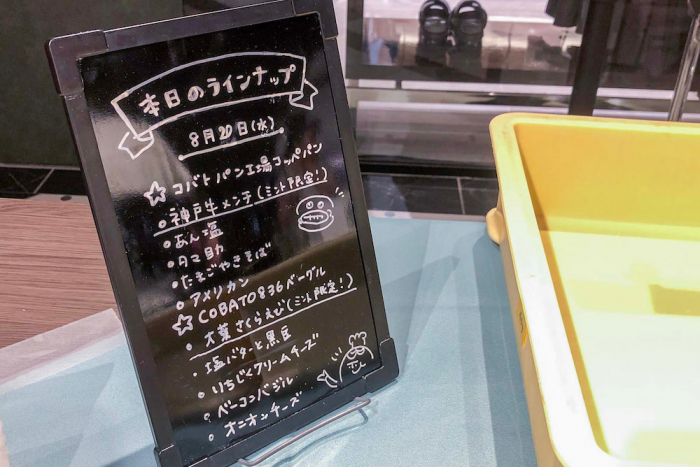 本日のラインナップ
8月20日(水)
☆コバトパン工場コッペパン
・神戸牛メンチ(ミント限定!)
・あん塩
・タマ助
・たまごやきそば
・アメリカン
☆COBATO836ベーグル
・大葉さくらえび(ミント限定!)
・塩バターと黒豆
・いちじくクリームチーズ
・ベーコンバジル
・オニオンチーズ